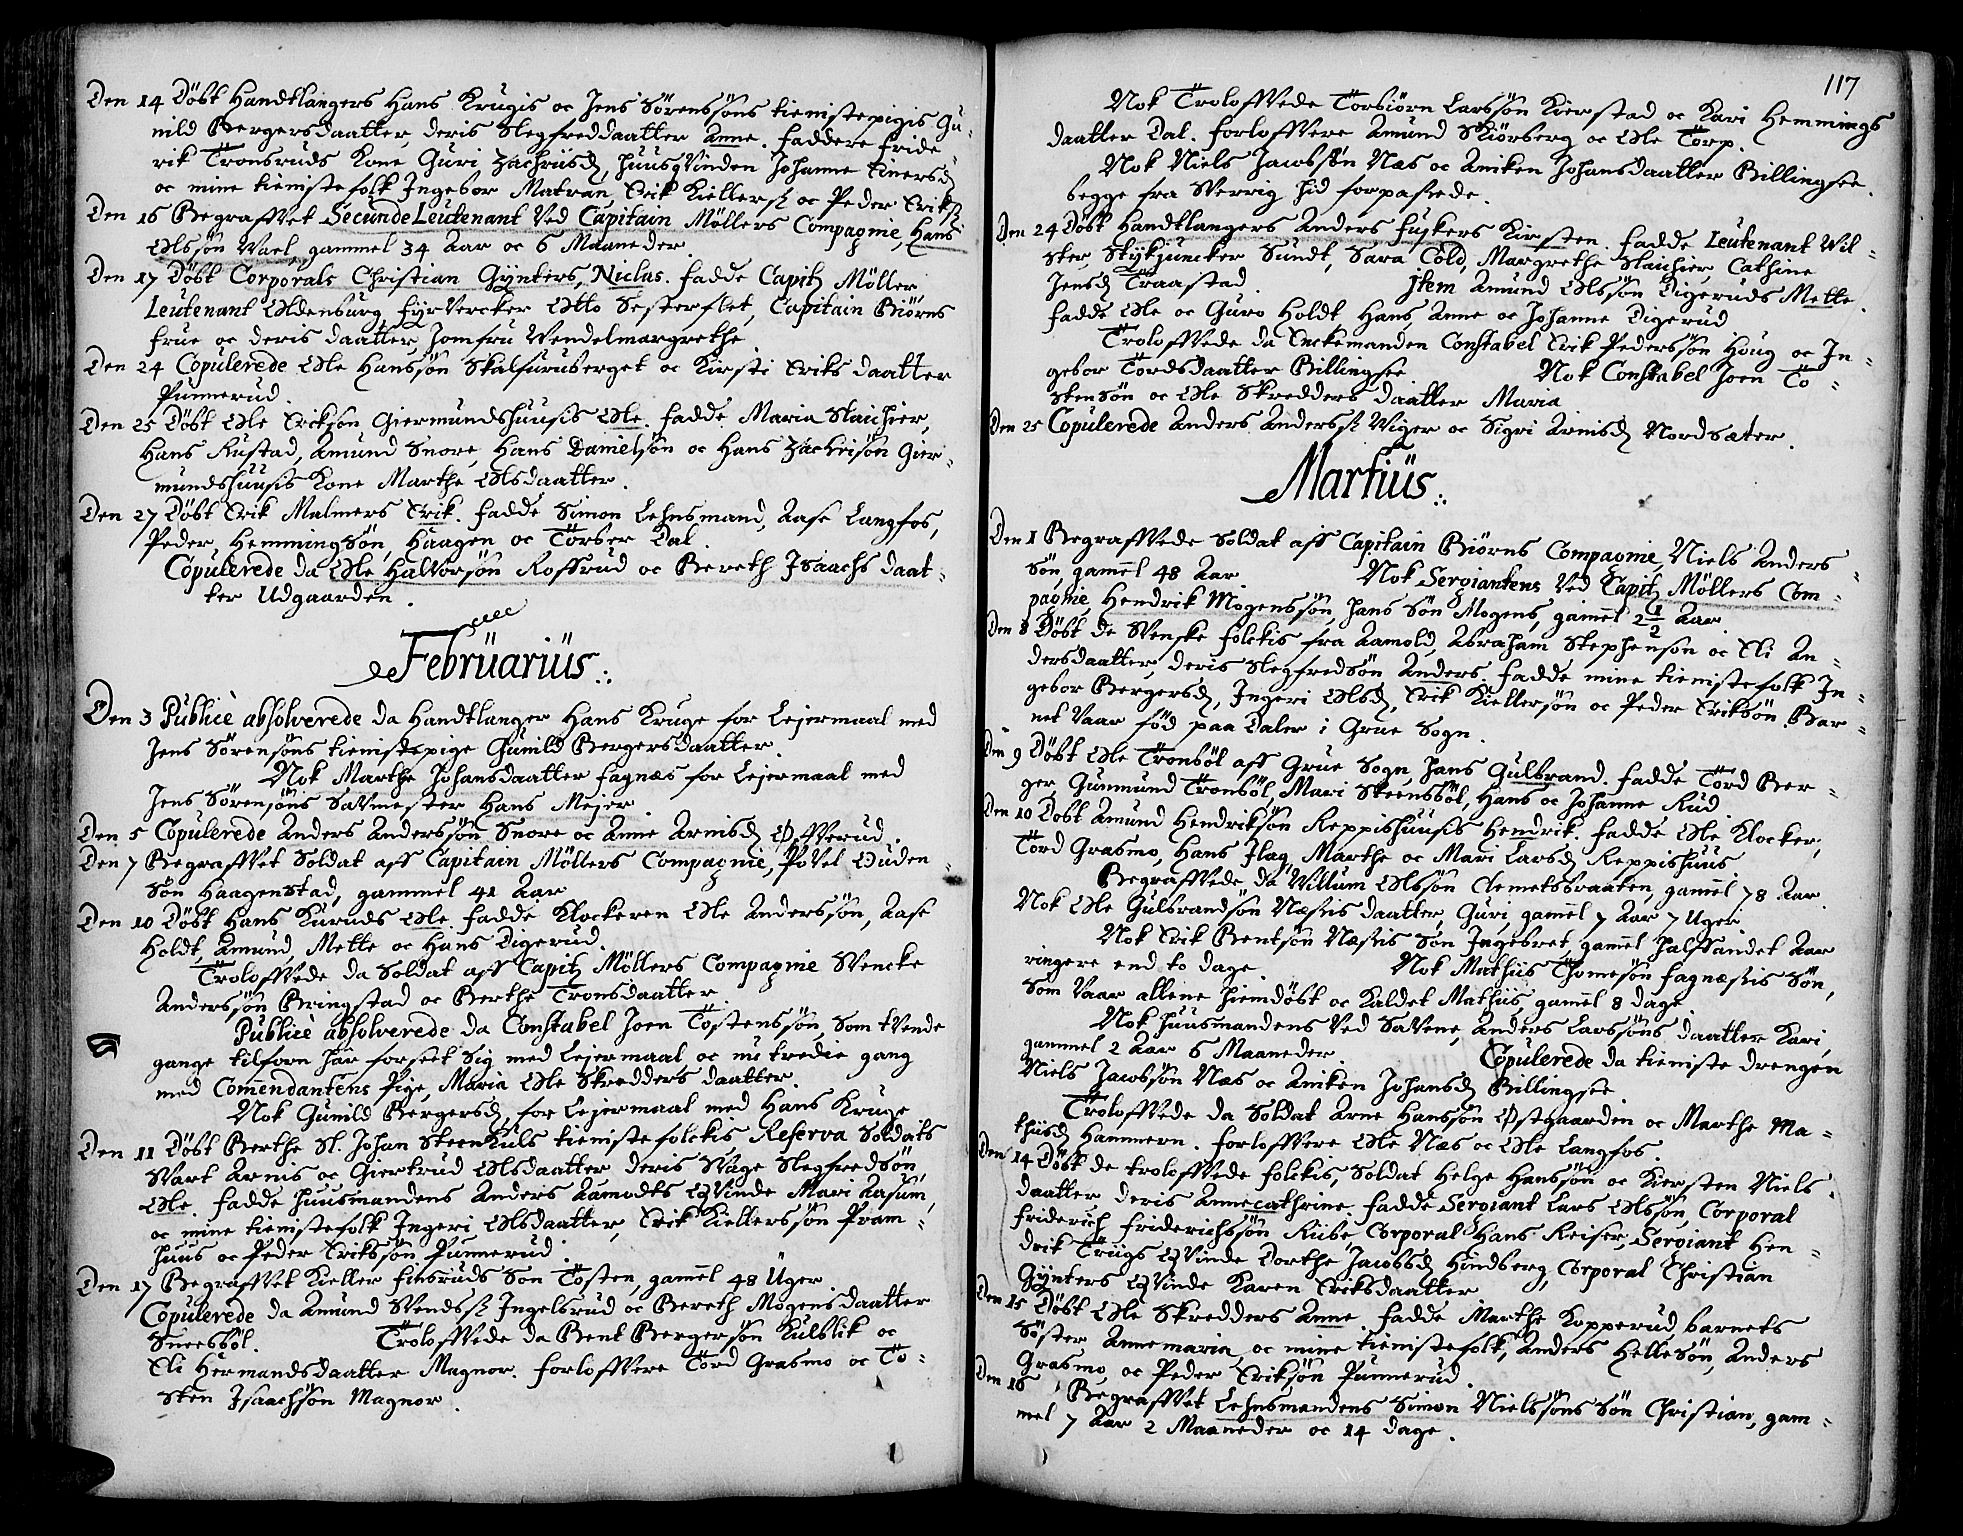 Den 14 Döbt Handtlangers Hans Krugis oc Jens Sörenssöns tienistepigis Gu-
nild Bergersdaatter, deris Slegfreddaatter Anne. Faddere Fride-
rik Tronsruds Kone Guri Zachriisd, Huusqvinden Johanne Einersd
oc mine tienistefolk Ingebor Matran, Erik Kiellers: oc Peder Eriks:
Den 16 Begraffvet Secunde Leutenant Ved Capitain Möllers Compagnie, Hans
Olssön Wael, gammel 34 Aar oc 6 Maaneder.
Den 17 Döbt Corporals Christian Gÿnters, Niclas. Fadde Capit: Möller
Leutenant Oldensburg, Fyrvercker Otto Sesterflet, Capitain Biörns
Frue oc deris daatter, Jomfru Wendelmargrethe
Den 24 Copulerede Ole Hanssön Skalfuruberget oc Kirsti Eriks daatter
Punnerud.
Den 25 Döbt Ole Erikssön Giermundshuusis Ole. Fadde Maria Slaichier,
Hans Rustad, Amund Snore, Hans Danielsön oc Hans Zachrisön Gier-
mundshuusis Kone Marthe Olsdaatter.
Den 27 Döbt Erik Malmers Erik. Fadde Simon Lehnsmand, Aase Langfos,
Peder, Hemmingsön, Haagen oc Torber Dal
Copulerede da Ole Halvorsön Roffrud oc Bereth Isaachs daat-
ter Udgaarden.
Februarius
Den 3 Publicè absolverede da Handtlanger Hans Kruge for Lejermaal med
Jens Sörensöns tienistepige Gunild Bergersdaatter.
Nok Marthe Johansdaatter Fagnæs for Lejermaal med
Jens Sörensöns Savmester Hans Mejer.
Den 5 Copulerede Anders Anderssön Snore oc Anne Arnisd Öfverud.
Den 7 Begraffvet Soldat aff Capitain Möllers Compagnie, Povel Ouden-
sön Haagenstad, gammel 41 Aar
Den 10 Döbt Hans Kuruds Ole. Fadde Klockeren Ole Anderssön, Aase
Holdt, Amund, Mette oc Hans Digerud.
Troloffvede da Soldat aff Capit: Möllers Compagnie Svencke
Anderssön Bringstad oc Berthe Tronsdaatter
Publicè absolverede da Constabel Joen Tostenssön, som tvende
gange tilforn har forseet Sig med Lejermaal oc nu tredie gang
med Commendantens Pige, Maria Ole Skredders daatter.
Nok Gunild Bergersd, for Lejermaal med Hans Kruge
Den 11 Döbt Berthe Sl. Johan Steen Kuls tienistefolckis, Reserva Soldats
Svart Arnis oc Giertrud Olsdaatter deris Svage Slegfredsön,
Ole. Fadde Huusmandens Anders Aamodts Qvinde Mari Aasum,
oc mine tienistefolk Ingeri Olsdaatter, Erik Kiellerssön Pram-
huus oc Peder Erikssön Punnerud.
Den 17 Begraffvet Kieller Finsruds Son Tosten, gamel 48 Uger
Copulerede da Amund Svends: Ingelsrud oc Bereth Mogens daatter
Sneesböl. Troloffvede da Bent Bergersön Kulblik oc
Eli Hermandsdaatter Magnor. Forloffvere Tord Grasmo oc To-
sten Isaachsön Magnor.
117
Nok Troloffvede Torbiörn Larssön Kierstad oc Kari Hemmings
daatter Dal. Forloffvere Amund Skiörberg oc Ole Torp.
Nok Niels Jacobssön Næs oc Aniken Johansdaatter Billingsee.
begge fra Sverrig hid forpassede.
Den 24 Döbt Handtlangers Anders Fuskers Kirsten. Fadde Leutenant Wil-
ster, Stykjuncker Sundt, Sara Cold, Margrethe Slaichier, Cathrine
Jensd Traastad. Item Amund Olssön Digeruds Mette.
Fadde Ole oc Guro Holdt, Hans, Anne oc Johanne Digerud
Troloffvede da Enckemanden Constabel Erik Pederssön Houg oc In-
gebor Tordsdaatter Billingsee Nok Constabel Joen To-
stensön oc Ole Skredders daatter Maria
Den 25 Copulerede Anders Anders: Wiger oc Sigri Arnisd Nordsæter.
Martius
Den 1 Begraffvede Soldat aff Capitain Biörns Compagnie, Niels Anders-
Sön, gamel 48 Aar. Nok Sergiantens Ved Capit: Möllers Com-
pagnie, Hendrik Mogenssön, hans Sön Mogens, gamel 2 1/2 Aar
Den 8 Döbt de Svenske folckis fra Aamold, Abraham Stephensön oc Eli An-
dersdaatter, deris Slegfredsön Anders. Fadde mine tienistefolk In-
gebor Bergersd, Ingeri Olsd, Erik Kiellersön oc Peder Eriksön. Bar-
net Vaar föd paa Daler i Grue Sogn.
Den 9 Döbt Ole Tronböl aff Grue Sogn, hans Gulbrand. Fadde Tord Ber-
ger, Gunmund Tronböl, Mari Steensböl, Hans oc Johanne Rud
Den 10 Döbt Amund Hendriksön Reppishuusis Hendrik. Fadde Ole Klocker,
Tord Grasmo, Hans Ilag, Marthe oc Mari Larsd Reppishuus
Begraffvede da Villum Olssön Clemetsbraaten, gamel 78 Aar
Nok Ole Gulbrandsön Næssis daatter, Guri, gamel 7 Aar 7 Uger
Nok Erik Bentsön Næssis Sön Ingebret, gamel halffandet Aar
ringere end to dage. Nok Mathiis Thomesön Fagnæssis Sön,
Som Vaar allene hiemdöbt oc Kaldet Mathiis gamel 8 dage
Nok Huusmandens Ved Savene, Anders Larssöns daatter Kari,
gammel 2 Aar 6 Maaneder. Copulerede da tieniste drengen
Niels Jacobsön Næs oc Aniken Johansd Billingsee
Troloffvede da Soldat Arne Hanssön Östgaarden oc Marthe Ma-
thiisd Hammern. Forloffvere Ole Næs oc Ole Langfos.
Den 14 Döbt de troloffvede folckis, Soldat Helge Hanssön oc Kirsten Niels-
daatter deris Annecathrine. Fadde Sergiant Lars Olssön, Corporal
Friderich Friderichssön Rube, Corporal Hans Reiser, Sergiant Hen-
drik Trugs Qvinde Dorthe Jacobsd Hindsberg, Corporal Christian
Gÿnters Qvinde Karen Eriksdaatter
Den 15 Döbt Ole Skredders Anne. Fadde Marthe Kopperud, barnets
Söster Annemaria, oc mine tienistefolk, Anders Hellesön, Anders
Grasmo, oc Peder Eriksön Punnerud.
Den 16 Begraffvet Lehnsmandens Simon Nielssöns Sön Christian, gam-
mel 7 Aar 2 Maaneder oc 14 dage.